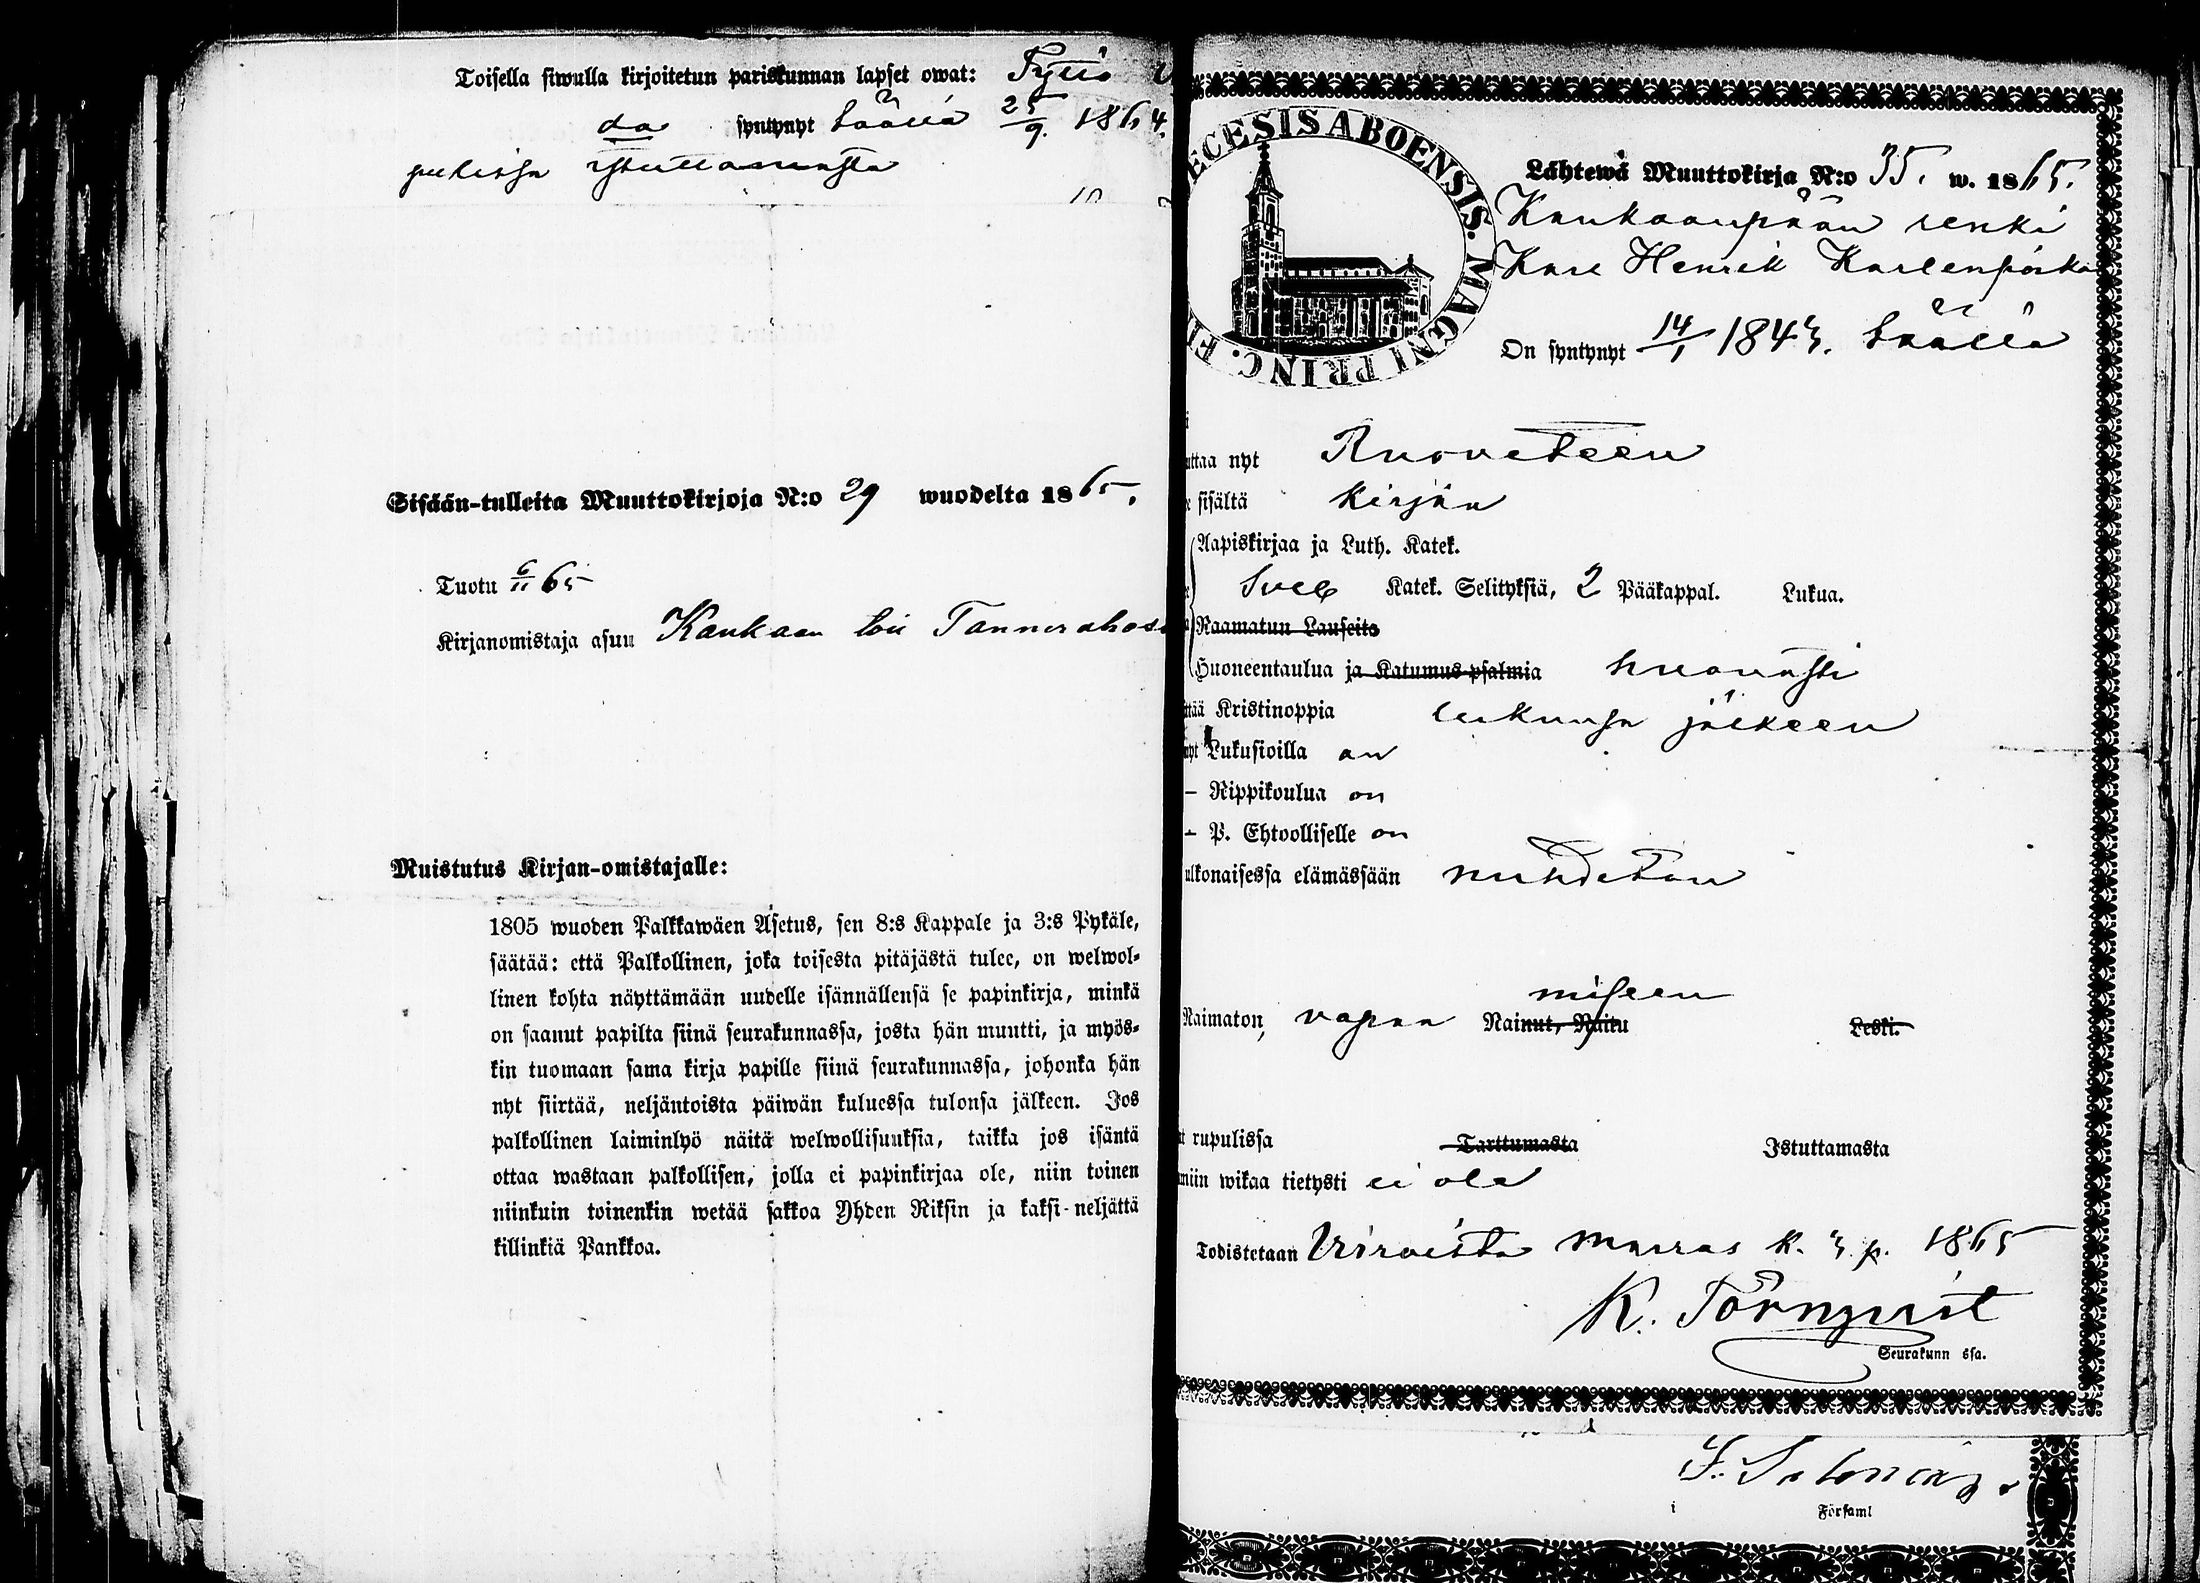 Toisella siwulla kirjoitetun pariskunnan lapset owat: Tyttö
da syntynyt täällä 25/9. 1864.
istuttamasta
Sisään-tulleita Muuttokirjoja N:o 29 wuodelta 1865.
Tuotu 6/11 65
Kirjanomistaja asuu Kaukaan
Muistutus Kirjan-omistajalle:
1805 wuoden Palkkawäen Asetus, sen 8:s Kappale ja 3:s Pykäle,
säätää: että Palkollinen, joka toisesta pitäjästä tulee, on welwol-
linen kohta näyttämään uudelle isännällensä se papinkirja, minkä
on saanut papilta siinä seurakunnassa, josta hän muutti, ja myös-
kin tuomaan sama kirja papille siinä seurakunnassa, johonka hän
nyt siirtää, neljäntoista päiwän kuluessa tulonsa jälkeen. Jos
palkollinen laiminlyö näitä welwollisuuksia, taikka jos isäntä
ottaa wastaan palkollisen, jolla ei papinkirjaa ole, niin toinen
niinkuin toinenkin wetää sakkoa Yhden Riksin ja kaksi-neljättä
killinkiä Pankkoa.
ECESIS ABOENSIS. MAGNI PRINC. FI
Lähtewä Muuttokirja N:o 35. w. 1865.
Kaukaanpään renki
Karl Henrik
On syntynyt 14/1 1843. täällä
uttaa nyt Ruoveteen
sisältä kirjan
Aapiskirjaa ja Luth. Katek.
Sveb Katek. Selityksiä, 2 Pääkappal. Lukua.
Raamatun Lauseita
Huoneentaulua ja Katumus-psalmia huonosti
ttää Kristinoppia lukunsa jälkeen
nyt Lukusioilla on
– Rippikoulua on
– P. Ehtoolliselle on
ulkonaisessa elämässään nuhdeton
miseen
Naimaton, vapaa Nainut, Naitu Leski.
t rupulissa Tarttumasta Istuttamasta
miin wikaa tietysti ei ole
Todistetaan Virroista marras k. 3 p. 1865
K. Törnqvist
Seurakunn ssa.
i Församl